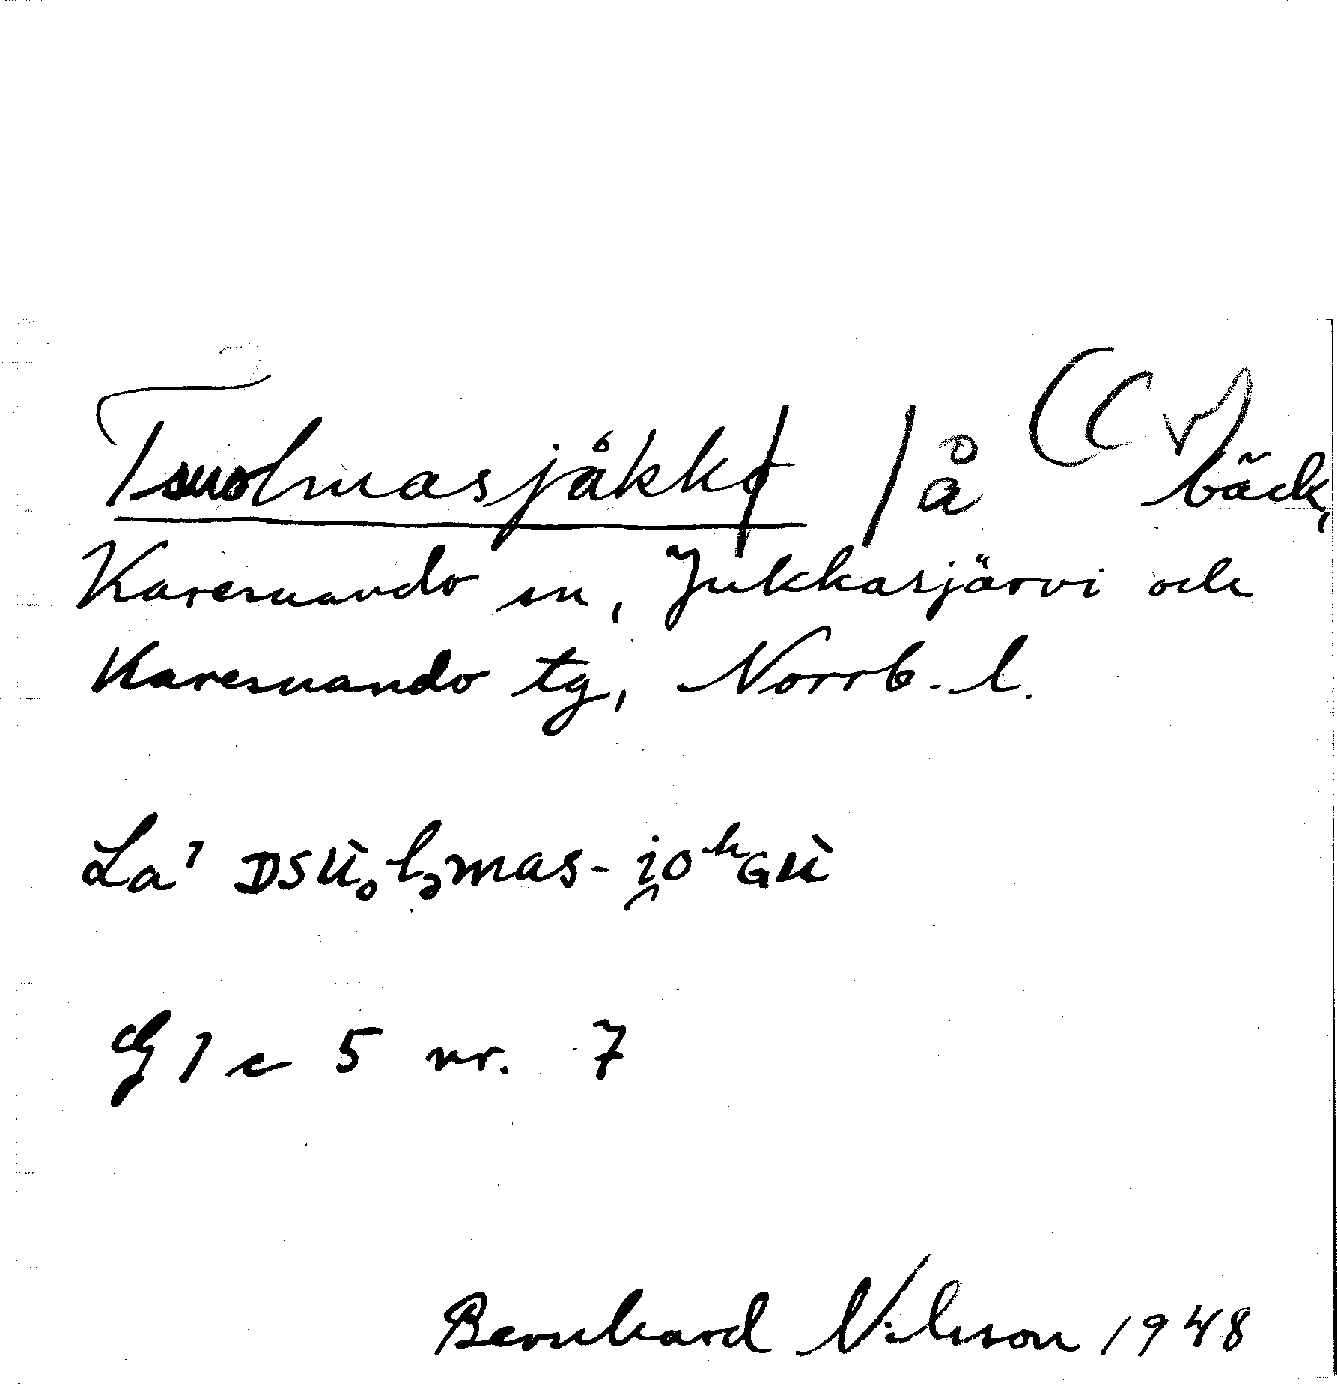 Tsuolmasjåkkå / å bäck,
Karesuando sn, Jukkasjärvi och
Karesuando tg, Norrb. l.
La
G 1 c 5 nr. 7
Bernhard Nilsson 1948